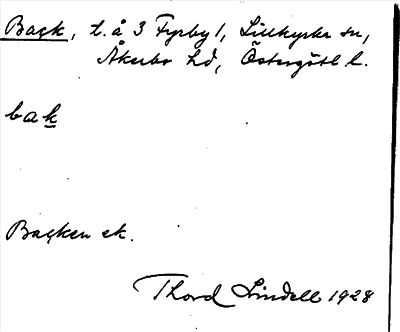 Back, t. å 3 Fyrby 1, Lillkyrka sn,
Åkerbo hd, Östergötl. l.
bak
Backen ek.
Thord Lindell 1928